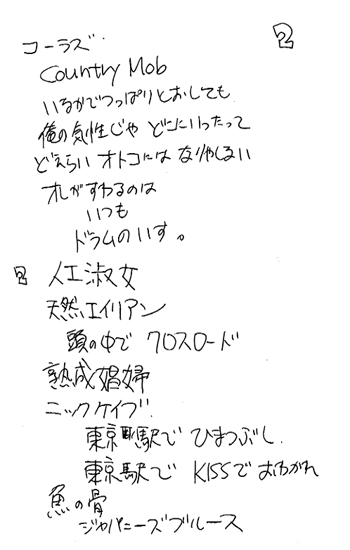 2
コーラズ
Country Mob
いなかでつっぱりとおしても
俺の気性じゃ どこにいったって
どえらい オトコには なりゃしない
オレがすわるのは
いつも
ドラムのいす。
2 人工淑女
天然エイリアン
頭の中で クロスロード
熟成娼婦
ニックケイブ
東京駅で ひまつぶし
東京駅で KISSで おわかれ
魚の骨
ジャパニーズブルース